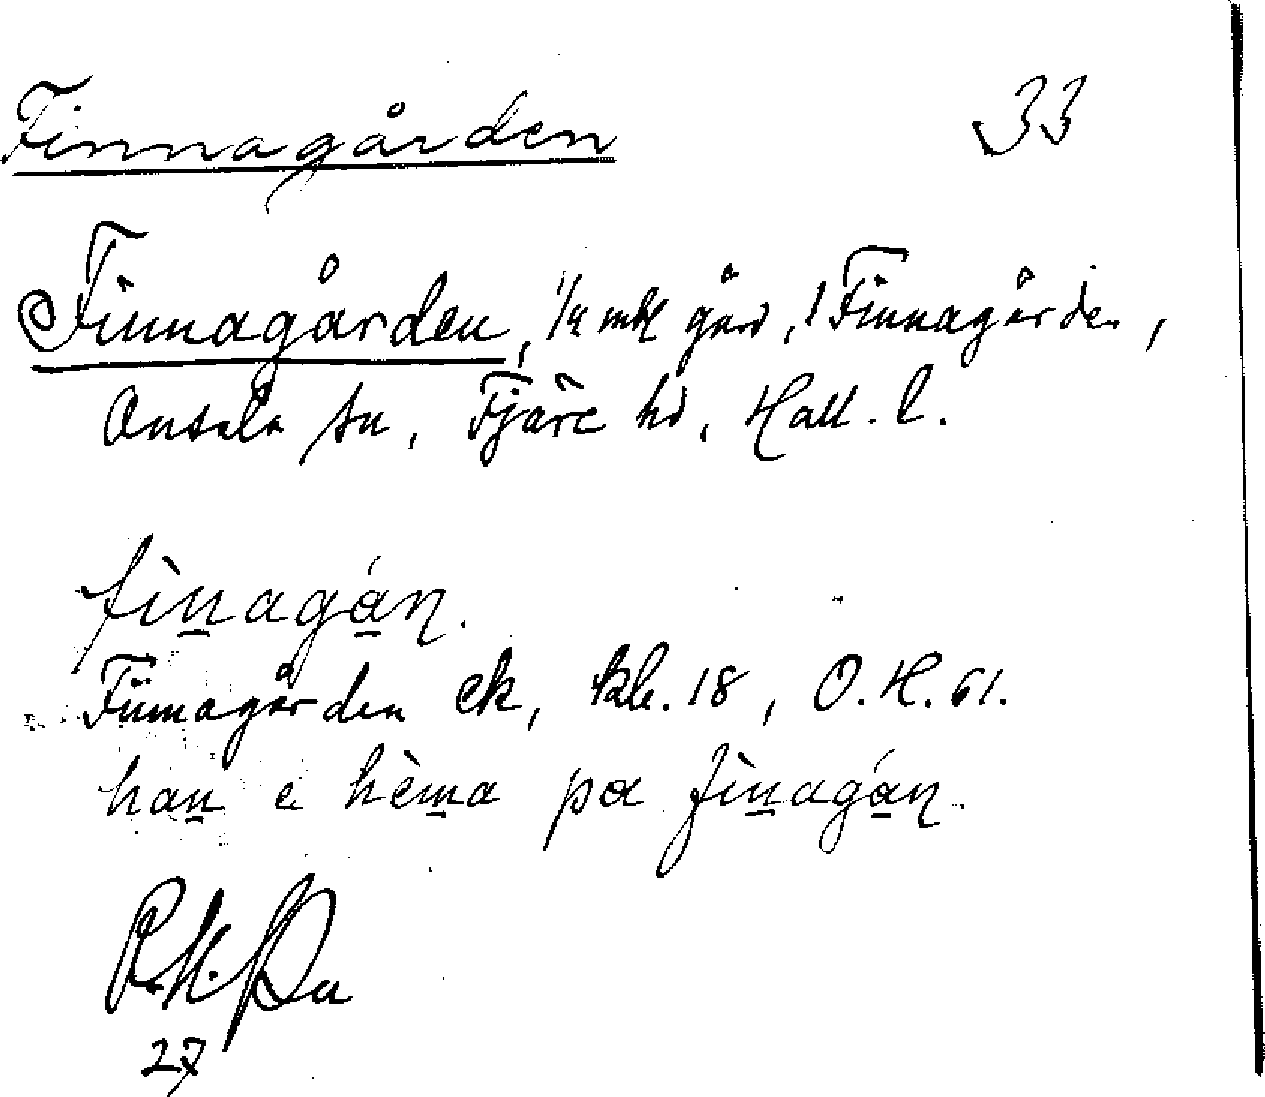 Finnagården 33
Finnagården, 1/4 mtl gård, i Finnagården,
Onsala sn, Fjäre hd, Hall. l.
fìn̲agá̲ɳ.
Finnagården ek, kbl. 18, O.H. 61.
han̲ e hèm̲a pα fìn̲agá̲ɳ.
27